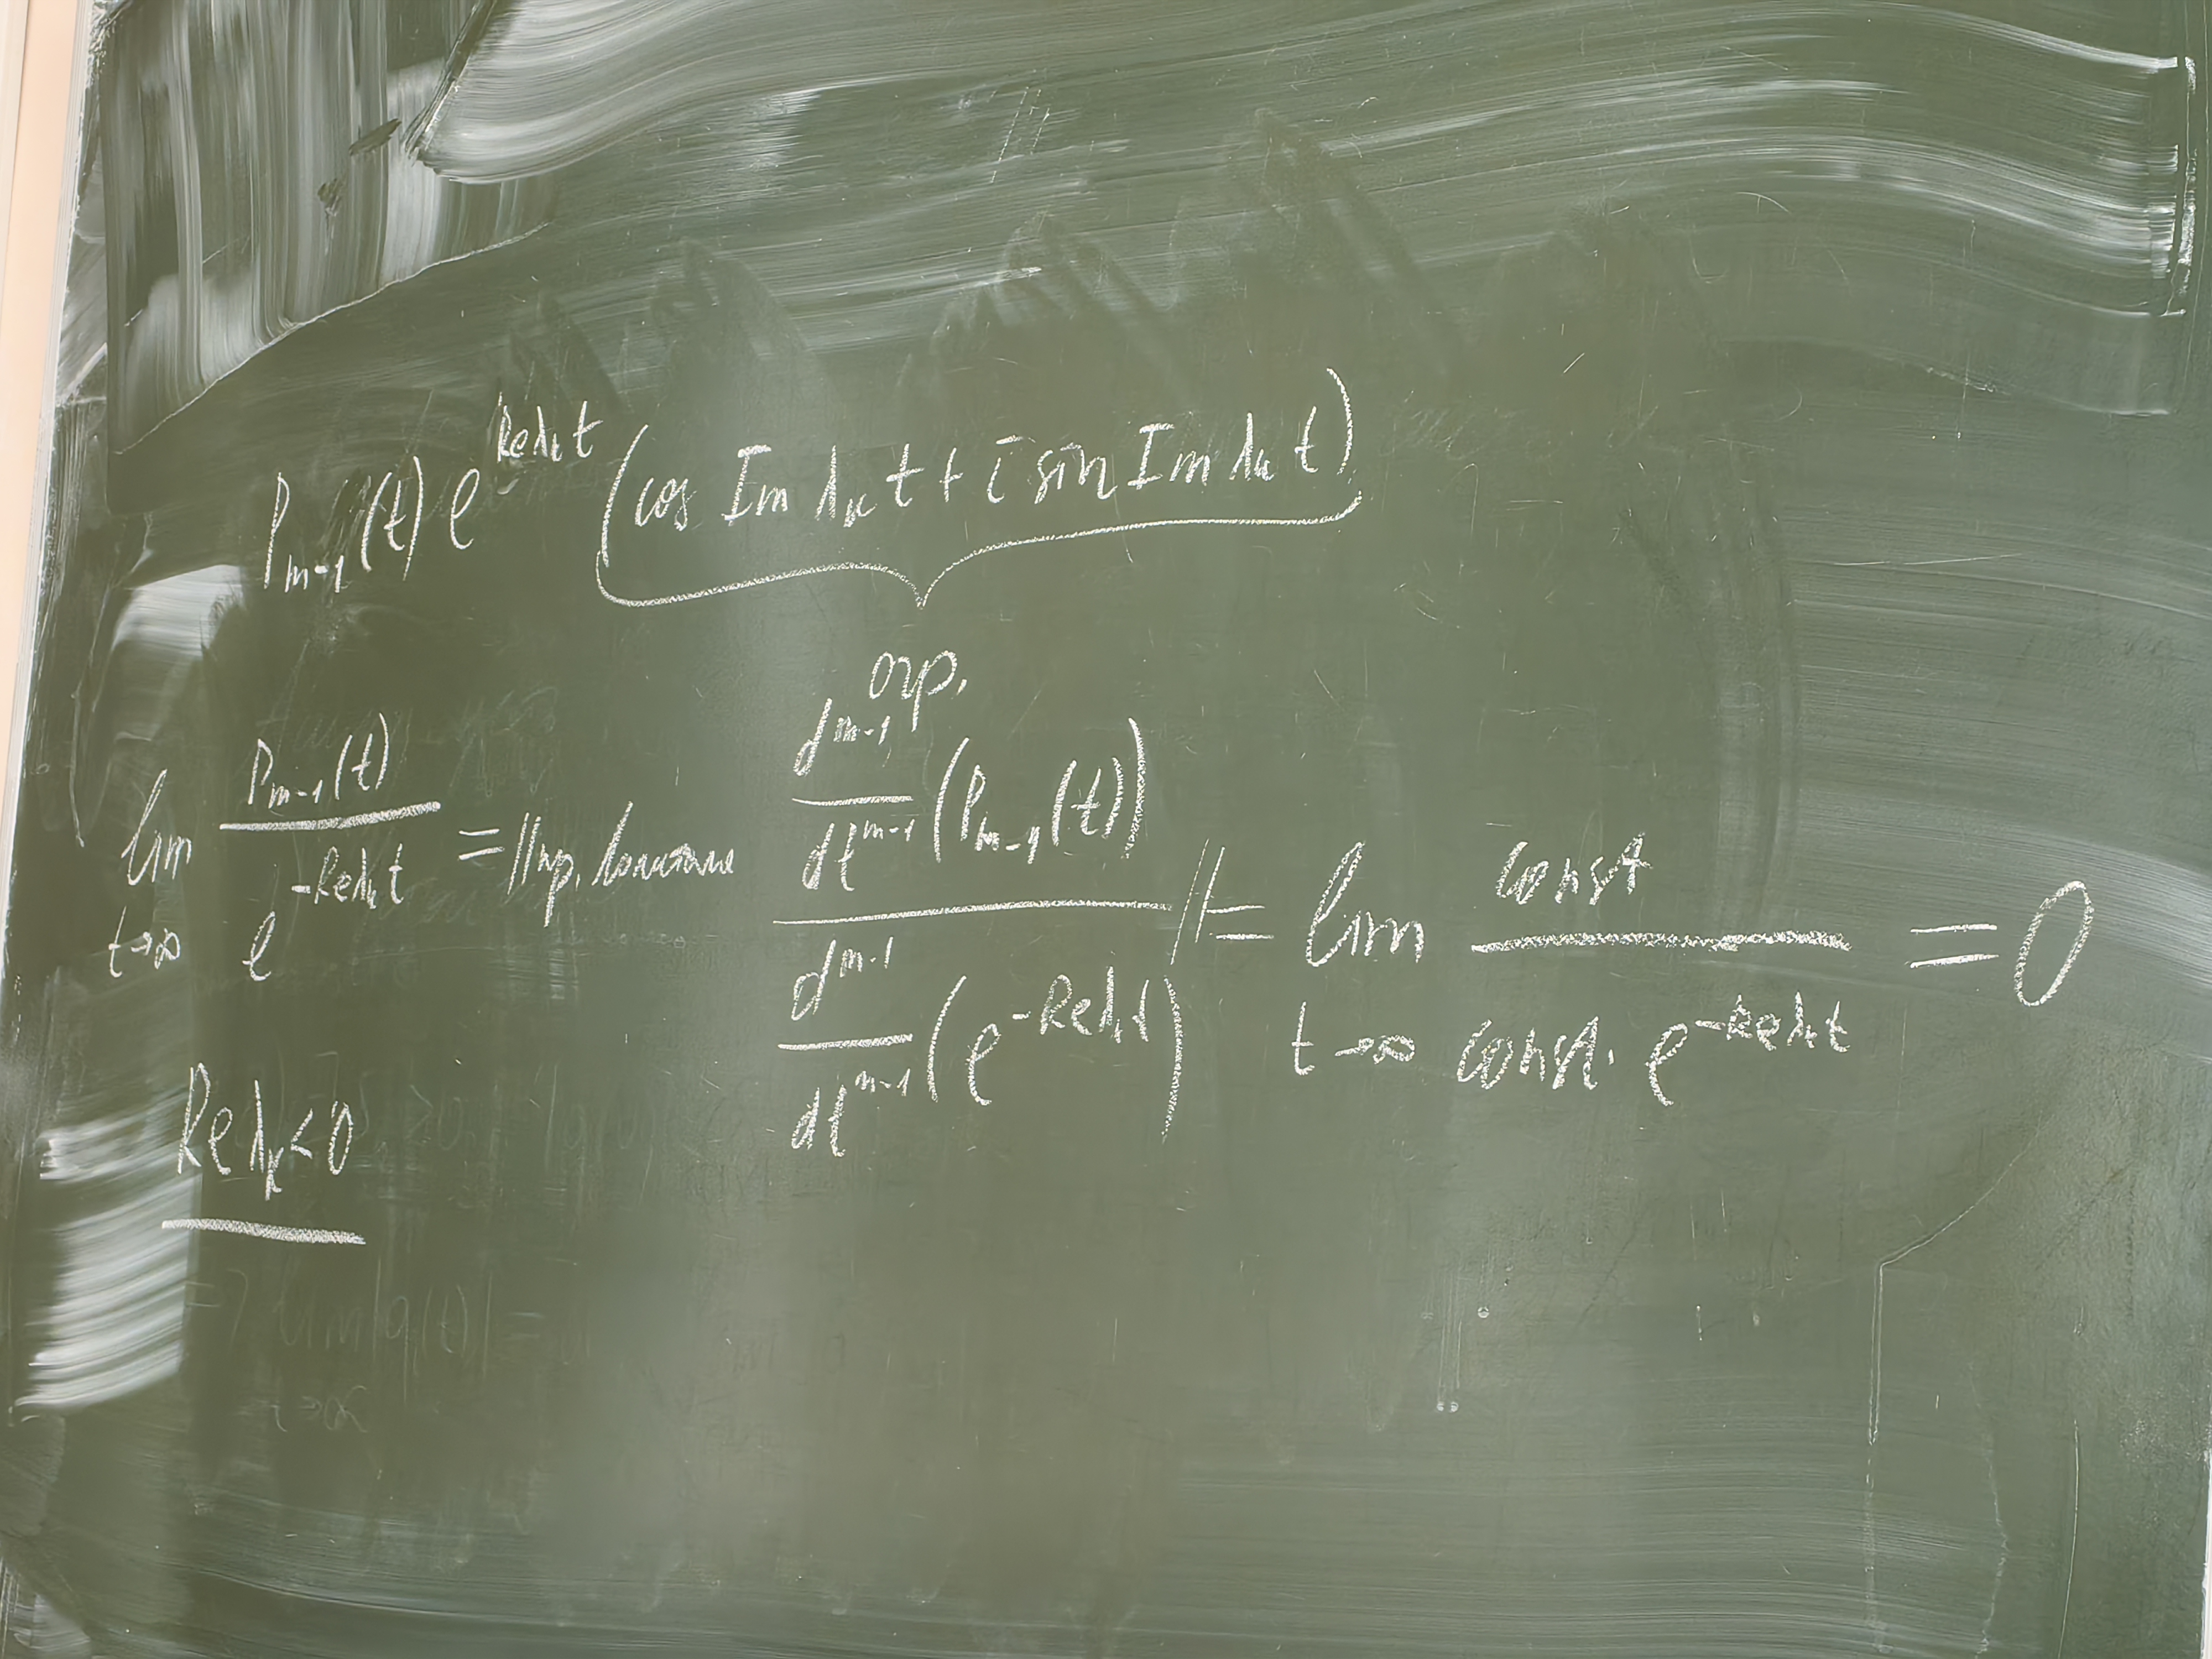 P_{m-1}(t) e^{Re λ_k t} (cos Im λ_k t + i sin Im λ_k t)
огр.
lim_{t→∞} \frac{P_{m-1}(t)}{e^{-Re λ_k t}} = || пр. Лопиталя \frac{\frac{d^{m-1}}{dt^{m-1}}(P_{m-1}(t))}{\frac{d^{m-1}}{dt^{m-1}}(e^{-Re λ_k t})} || = lim_{t→∞} \frac{const}{const · e^{-Re λ_k t}} = 0
Re λ_k < 0